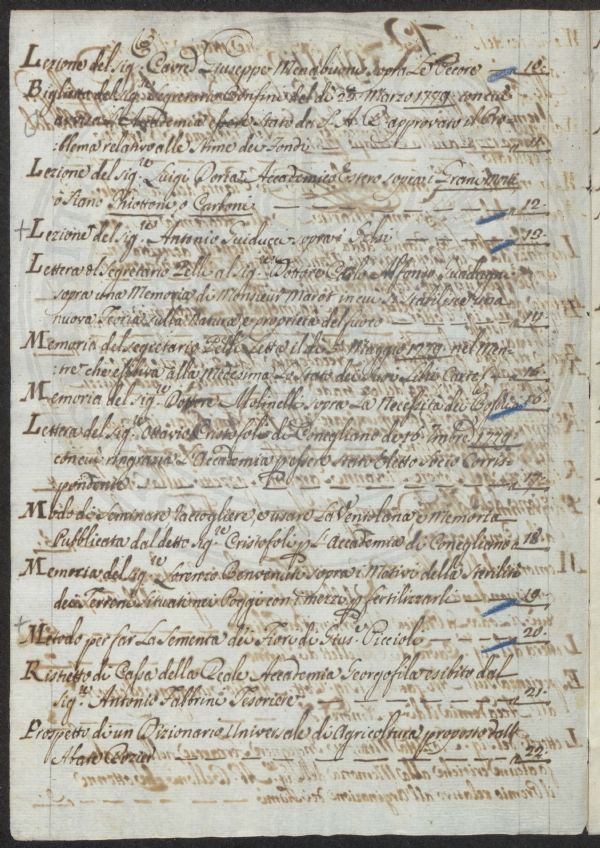 Lezione del Sig.r Cavre Giuseppe Menabuoni sopra Le Pecore — 10.
Biglietto del Sig.re Segretario Bonfini del dì 29. Marzo 1779. con cui
avvisa L'Accademia essere stato da S. A. R. approvato il Pro-
:blema relativo alle Stime dei Fondi — 11
Lezione del Sig.re Luigi Doria Accademico Estero sopra i Grani
o siano Ghiottone o Carbone — 12.
Lezione del Sig.re Antonio Guiducci sopra i Gelsi — 13.
Lettera del Segretario Pelli al Sig.re Dottore Carlo Alfonso Guadagni
sopra una Memoria di Monsieur Marat in cui si stabilisce una
nuova Teoria sulla Natura, e proprietà del fuoco — 14
Memoria del Segretario Pelli Letta il dì 5. Maggio 1779. nel men-
:tre che esibiva alla medesima Lo stato dei suoi Libri Carte &. — 15
Memoria del Sig.re Dottore Molinelli sopra La Necessità dei Boschi — 16
Lettera del Sig.re Ottavio Cristofoli di Conegliano de 16. 1779.
con cui ringrazia L'Accademia p essere stato Eletto Socio Corris-
:pondente — 17.
Modo di Seminare raccogliere, e usare La Ventolana e Memoria
Pubblicata dal detto Sig.re Cristofoli p L'Accademia di Conegliano — 18.
Memoria del Sig.re Lorenzo Benvenuti sopra i Motivi della Sterilità
dei Terreni situati nei Poggi con i mezzi p fertilizzarli — 19.
Metodo per far La Sementa dei Fiori di Gius.e Piccioli — 20.
Ristretto di Cassa della Reale Accademia Georgofila esibito dal
Sig.re Antonio Fabbrini Tesoriere — 21.
Prospetto di un Dizionario Universale di Agricoltura proposto dall'
Abate — 22.